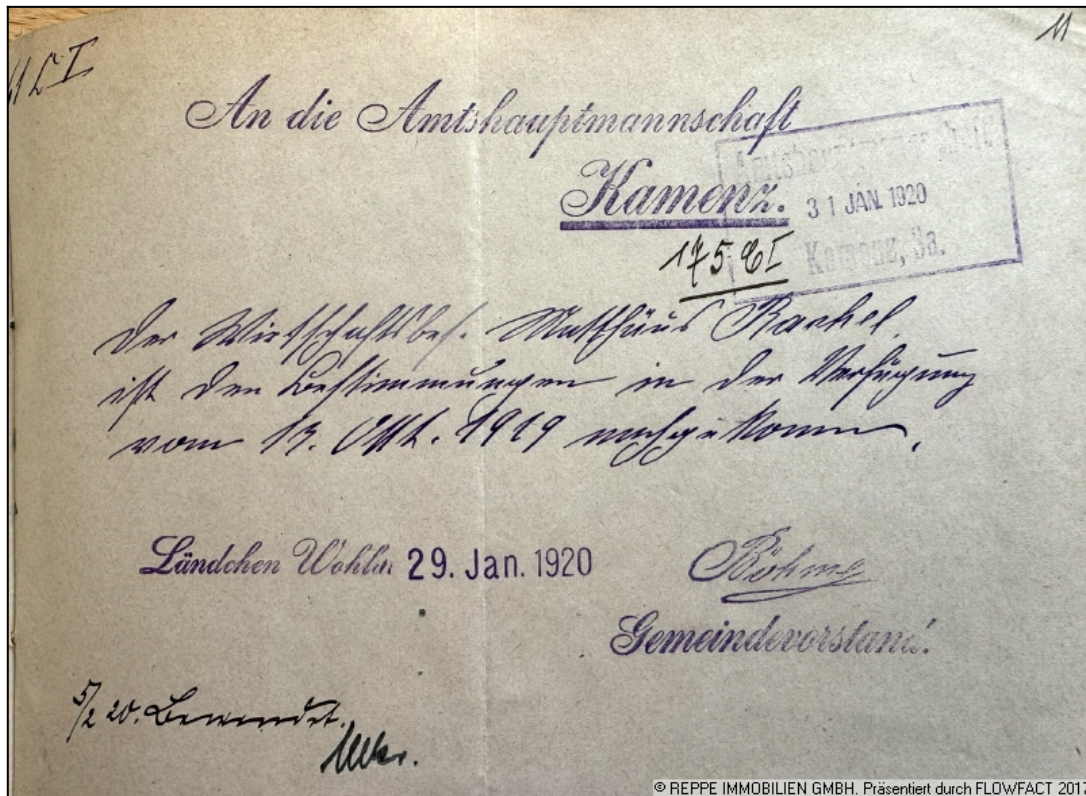 11
An die Amtshauptmannschaft
Kamenz.
Amtshauptmannschaft
31 JAN. 1920
Kamenz, Sa.
175 EI
Der Wirtschaftsbes. Matthäus Rachel
ist den Bestimmungen in der Verfügung
vom 13. Okt. 1919 nachgekommen.
Ländchen Wohla 29. Jan. 1920
Böhme
Gemeindevorstand.
5/2 20. Bewendet.
© REPPE IMMOBILIEN GMBH. Präsentiert durch FLOWFACT 2017